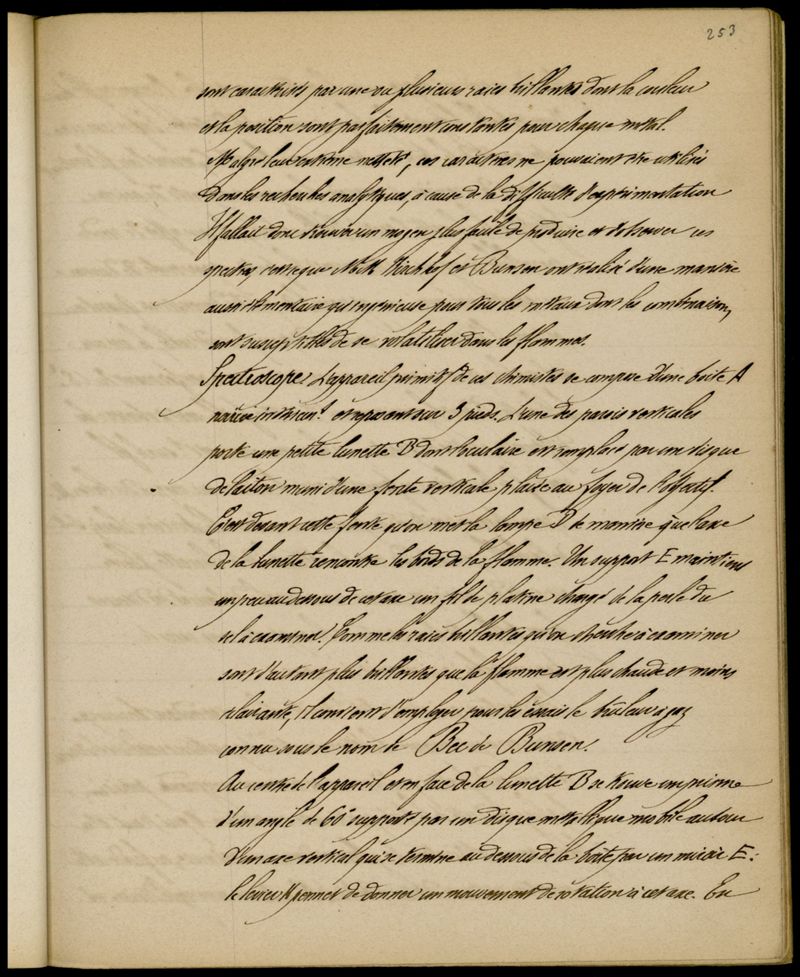 253
sont caractérisés par une ou plusieurs raies brillantes dont la couleur
et la position sont parfaitement constantes pour chaque métal.
Malgré leur extrême netteté, ces caractères ne pouvaient être utilisés
dans les recherches analytiques, à cause de la difficulté d'expérimentation
Il fallait donc trouver un moyen plus facile de produire et d'observer ces
spectres, c'est ce que M.M. Kirchhof et Bunsen ont réalisé d'une manière
aussi élémentaire qu'ingénieuse pour tous les métaux dont les combinaisons,
sont susceptibles de se volatiliser dans les flammes.
Spectroscope. L'appareil primitif de ces chimistes se compose d'une boite A
noircie intérieur.t et reposant sur 3 pieds. L'une des parois verticales
porte une petite lunette B dont l'oculaire est remplacé par un disque
de laiton muni d'une fente verticale placée au foyer de l'objectif.
C'est devant cette fente qu'on met la lampe D de manière que l'axe
de la lunette rencontre les bords de la flamme. Un support E maintient
un peu au dessous de cet axe un fil de platine chargé de la perle du
sel à examiner. Comme les raies brillantes qu'on cherche à examiner
sont d'autant plus brillantes que la flamme est plus chaude et moins
éclairante, il convient d'employer pour les essais le brûleur à gaz
connu sous le nom de Bec de Bunsen.
Au centre de l'appareil et en face de la lunette B se trouve un prisme
d'un angle de 60° supporté par un disque métallique mobile autour
d'un axe vertical qui se termine au dessous de la boite par un miroir E.
le levier H permet de donner un mouvement de rotation à cet axe. En